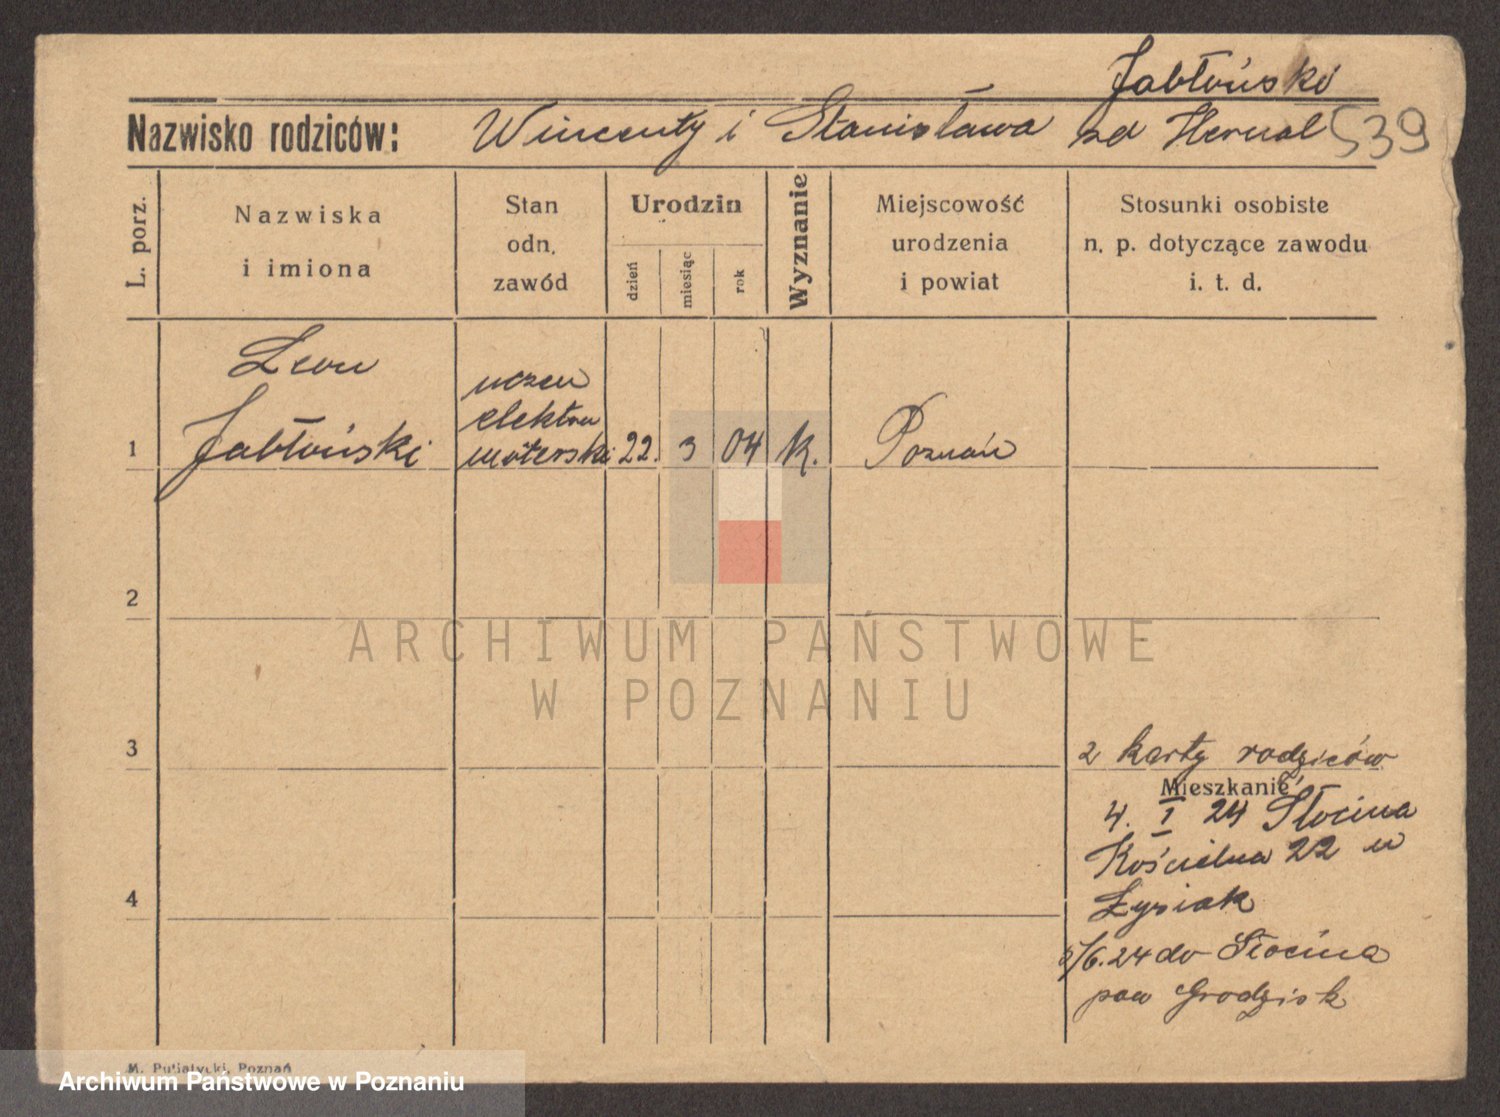 Jabłoński
Nazwisko rodziców: Wincenty i Stanisława zd Hernal 539
L. porz.
Nazwiska
i imiona
Stan
odn.
zawód
Urodzin
dzień
miesiąc
rok
Wyznanie
Miejscowość
urodzenia
i powiat
Stosunki osobiste
n. p. dotyczące zawodu
i. t. d.
Leon
Jabłoński
uczeń
elektro
moterski
1
22. 3 04 k. Poznań
2
ARCHIWUM PAŃSTWOWE
W POZNANIU
3
2 karty rodziców
Mieszkanie
4. I 24 Słocina
Kościelna 22 u
Łysiak
4
/6.24 do Słocina
pow Grodzisk
M. Putiatycki, Poznań
Archiwum Państwowe w Poznaniu